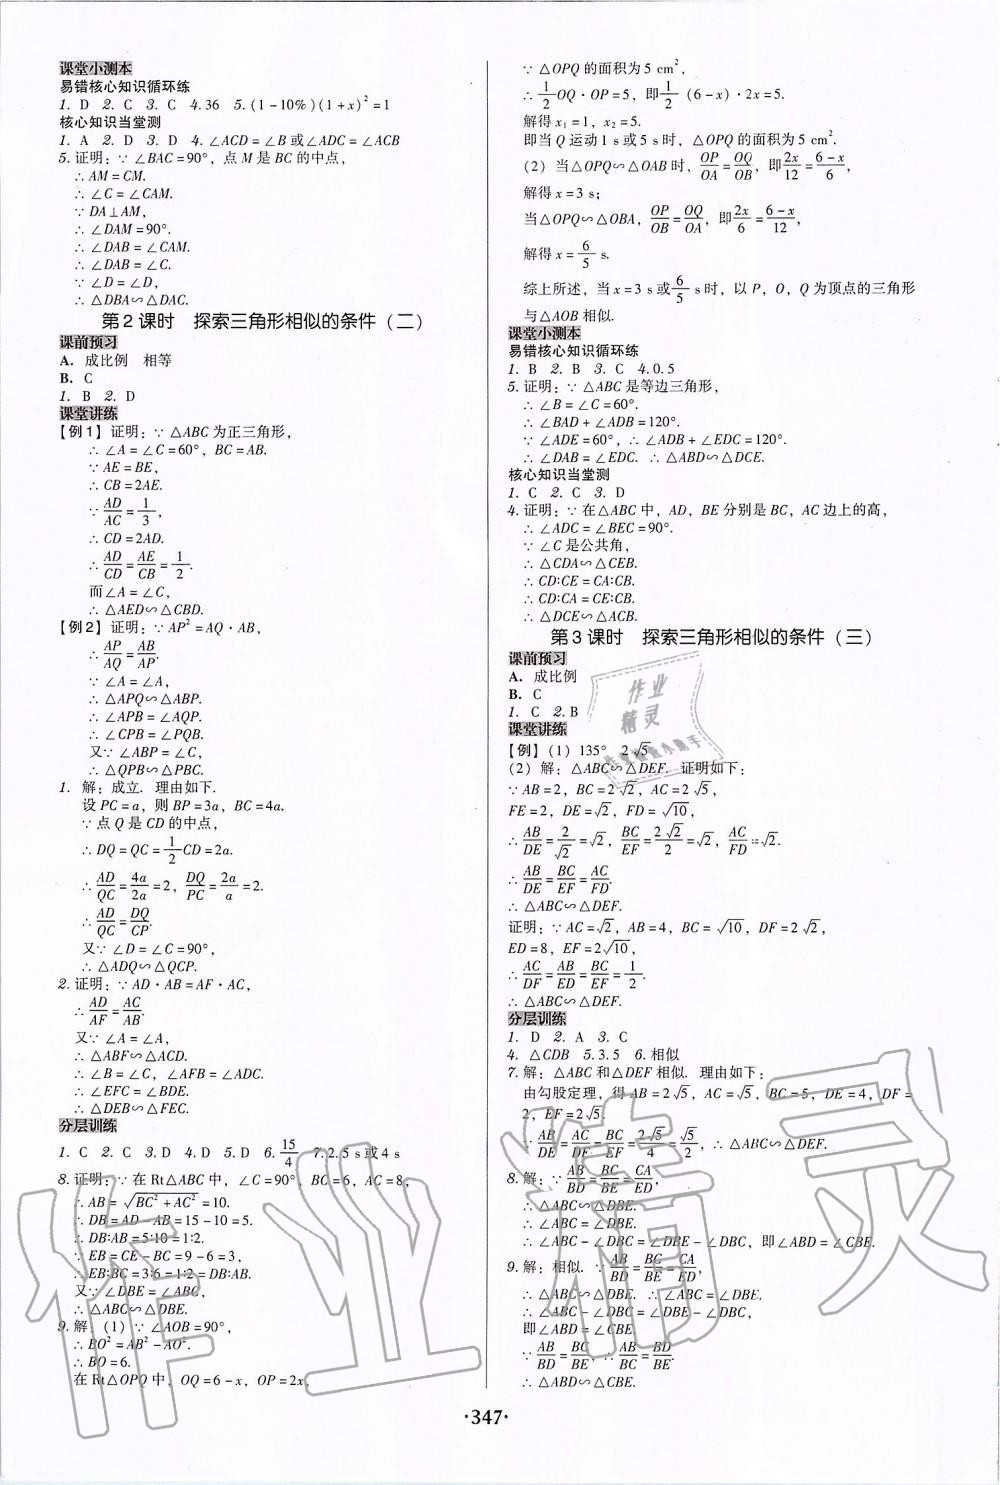 课堂小测本
易错核心知识循环练
1. D 2. C 3. C 4.36 5.(1-10%)(1+x)²=1
核心知识当堂测
1. A 2. D 3. D 4.∠ACD=∠B或∠ADC=∠ACB
5.证明:∵∠BAC=90°,点M是BC的中点,
∴AM=CM.
∴∠C=∠CAM.
∵DA⊥AM,
∴∠DAM=90°.
∴∠DAB=∠CAM.
∴∠DAB=∠C.
∵∠D=∠D,
∴△DBA∽△DAC.
第2课时 探索三角形相似的条件(二)
课前预习
A. 成比例 相等
B. C
1. B 2. D
课堂讲练
【例1】证明:∵△ABC为正三角形,
∴∠A=∠C=60°,BC=AB.
∵AE=BE,
∴CB=2AE.
∵AD/AC=1/3,
∴CD=2AD.
∴AD/CD=AE/CB=1/2.
而∠A=∠C,
∴△AED∽△CBD.
【例2】证明:∵AP²=AQ·AB,
∴AP/AQ=AB/AP.
∵∠A=∠A,
∴△APQ∽△ABP.
∴∠APB=∠AQP.
∴∠CPB=∠PQB.
又∵∠ABP=∠C,
∴△QPB∽△PBC.
1. 解:成立. 理由如下.
设PC=a,则BP=3a,BC=4a.
∵点Q是CD的中点,
∴DQ=QC=1/2CD=2a.
∴AD/QC=4a/2a=2,DQ/PC=2a/a=2.
∴AD/QC=DQ/CP.
又∵∠D=∠C=90°,
∴△ADQ∽△QCP.
2.证明:∵AD·AB=AF·AC,
∴AD/AF=AC/AB.
又∵∠A=∠A,
∴△ABF∽△ACD.
∴∠B=∠C,∠AFB=∠ADC.
∴∠EFC=∠BDE.
∴△DEB∽△FEC.
分层训练
1. C 2. C 3. D 4. D 5. D 6.15/4 7.2.5 s或4 s
8.证明:∵在Rt△ABC中,∠C=90°,BC=6,AC=8,
∴AB=√(BC²+AC²)=10.
∴DB=AD-AB=15-10=5.
∴DB∶AB=5∶10=1∶2.
∵EB=CE-BC=9-6=3,
∴EB∶BC=3∶6=1∶2=DB∶AB.
又∵∠DBE=∠ABC,
∴△ABC∽△DBE.
9.解:(1)∵∠AOB=90°,
∴BO²=AB²-AO².
∴BO=6.
在Rt△OPQ中,OQ=6-x,OP=2x,
∵△OPQ的面积为5 cm²,
∴1/2OQ·OP=5,即1/2(6-x)·2x=5.
解得x₁=1,x₂=5.
即当Q运动1 s或5 s时,△OPQ的面积为5 cm².
(2)当△OPQ∽△OAB时,OP/OA=OQ/OB,即2x/12=(6-x)/6,
解得x=3 s;
当△OPQ∽△OBA,OP/OB=OQ/OA,即2x/6=(6-x)/12,
解得x=6/5 s.
综上所述,当x=3 s或6/5 s时,以P,O,Q为顶点的三角形
与△AOB相似.
课堂小测本
易错核心知识循环练
1. B 2. B 3. C 4.0.5
5.证明:∵△ABC是等边三角形,
∴∠B=∠C=60°.
∴∠BAD+∠ADB=120°.
∵∠ADE=60°,∴∠ADB+∠EDC=120°.
∴∠DAB=∠EDC. ∴△ABD∽△DCE.
核心知识当堂测
1. C 2. C 3. D
4.证明:∵在△ABC中,AD,BE分别是BC,AC边上的高,
∴∠ADC=∠BEC=90°.
∵∠C是公共角,
∴△CDA∽△CEB.
∴CD∶CE=CA∶CB.
∴CD∶CA=CE∶CB.
∴△DCE∽△ACB.
第3课时 探索三角形相似的条件(三)
课前预习
A. 成比例
B. C
1. C 2.B
课堂讲练
【例】(1)135° 2√5
(2)解:△ABC∽△DEF. 证明如下:
∵AB=2,BC=2√2,AC=2√5,
FE=2,DE=√2,FD=√10,
∴AB/DE=2/√2=√2,BC/EF=2√2/2=√2,AC/FD=√2.
∴AB/DE=BC/EF=AC/FD.
∴△ABC∽△DEF.
证明:∵AC=√2,AB=4,BC=√10,DF=2√2,
ED=8,EF=2√10,
∴AC/DF=AB/ED=BC/EF=1/2.
∴△ABC∽△DEF.
分层训练
1. D 2. A 3. C
4. △CDB 5.3.5 6.相似
7.解:△ABC和△DEF相似. 理由如下:
由勾股定理,得AB=2√5,AC=√5,BC=5,DE=4,DF=
2,EF=2√5.
∵AB/DE=AC/DF=BC/EF=2√5/4=√5/2,∴△ABC∽△DEF.
8.解:∵AB/BD=BC/BE=CA/ED,
∴△ABC∽△DBE.
∴∠ABC=∠DBE.
∴∠ABC-∠DBC=∠DBE-∠DBC,即∠ABD=∠CBE.
9.解:相似. ∵AB/BD=BC/BE=CA/ED,
∴△ABC∽△DBE. ∴∠ABC=∠DBE.
∴∠ABC-∠DBC=∠DBE-∠DBC,
即∠ABD=∠CBE.
∵AB/BD=BC/BE,∴AB/BC=BD/BE.
∴△ABD∽△CBE.
·347·
作业精灵
作业
精灵